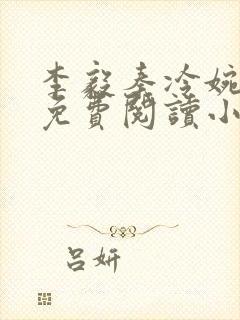 李毅秦冷婉
免費閱讀小
吕妍